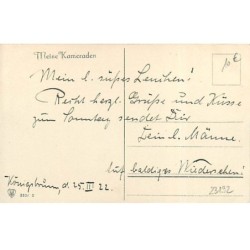 Meine Kameraden
Mein l. süßes Lenchen!
Recht herzl. Grüße und Küsse
zum Sonntag sendet Dir
Dein l. Männe.
Auf baldiges Wiedersehen!
Königsbrunn, d. 25. III 22.